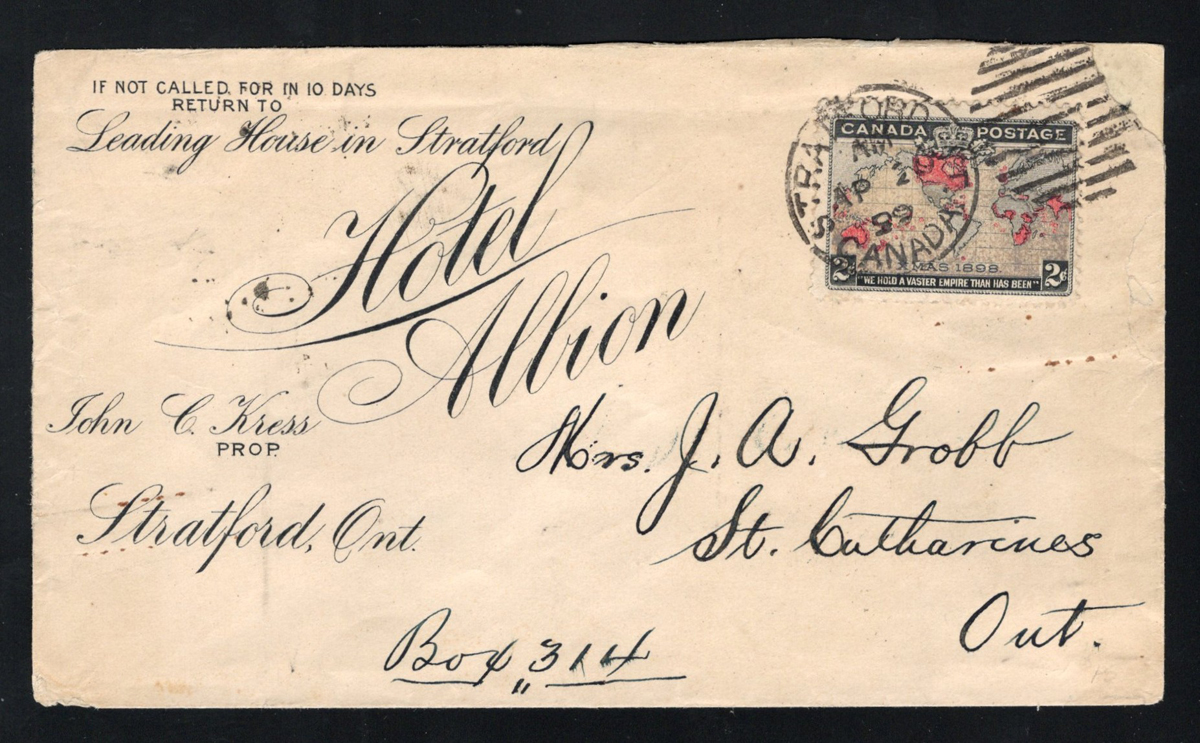 IF NOT CALLED FOR IN 10 DAYS
RETURN TO
Leading House in Stratford
Hotel
Albion
John C. Kress
PROP.
Stratford, Ont.
STRATFORD
AM
AP 2
99
CANADA
CANADA POSTAGE
XMAS 1898
2c 2c
"WE HOLD A VASTER EMPIRE THAN HAS BEEN"
Mrs. J. A. Grobb
St. Catharines
Ont.
Box 314